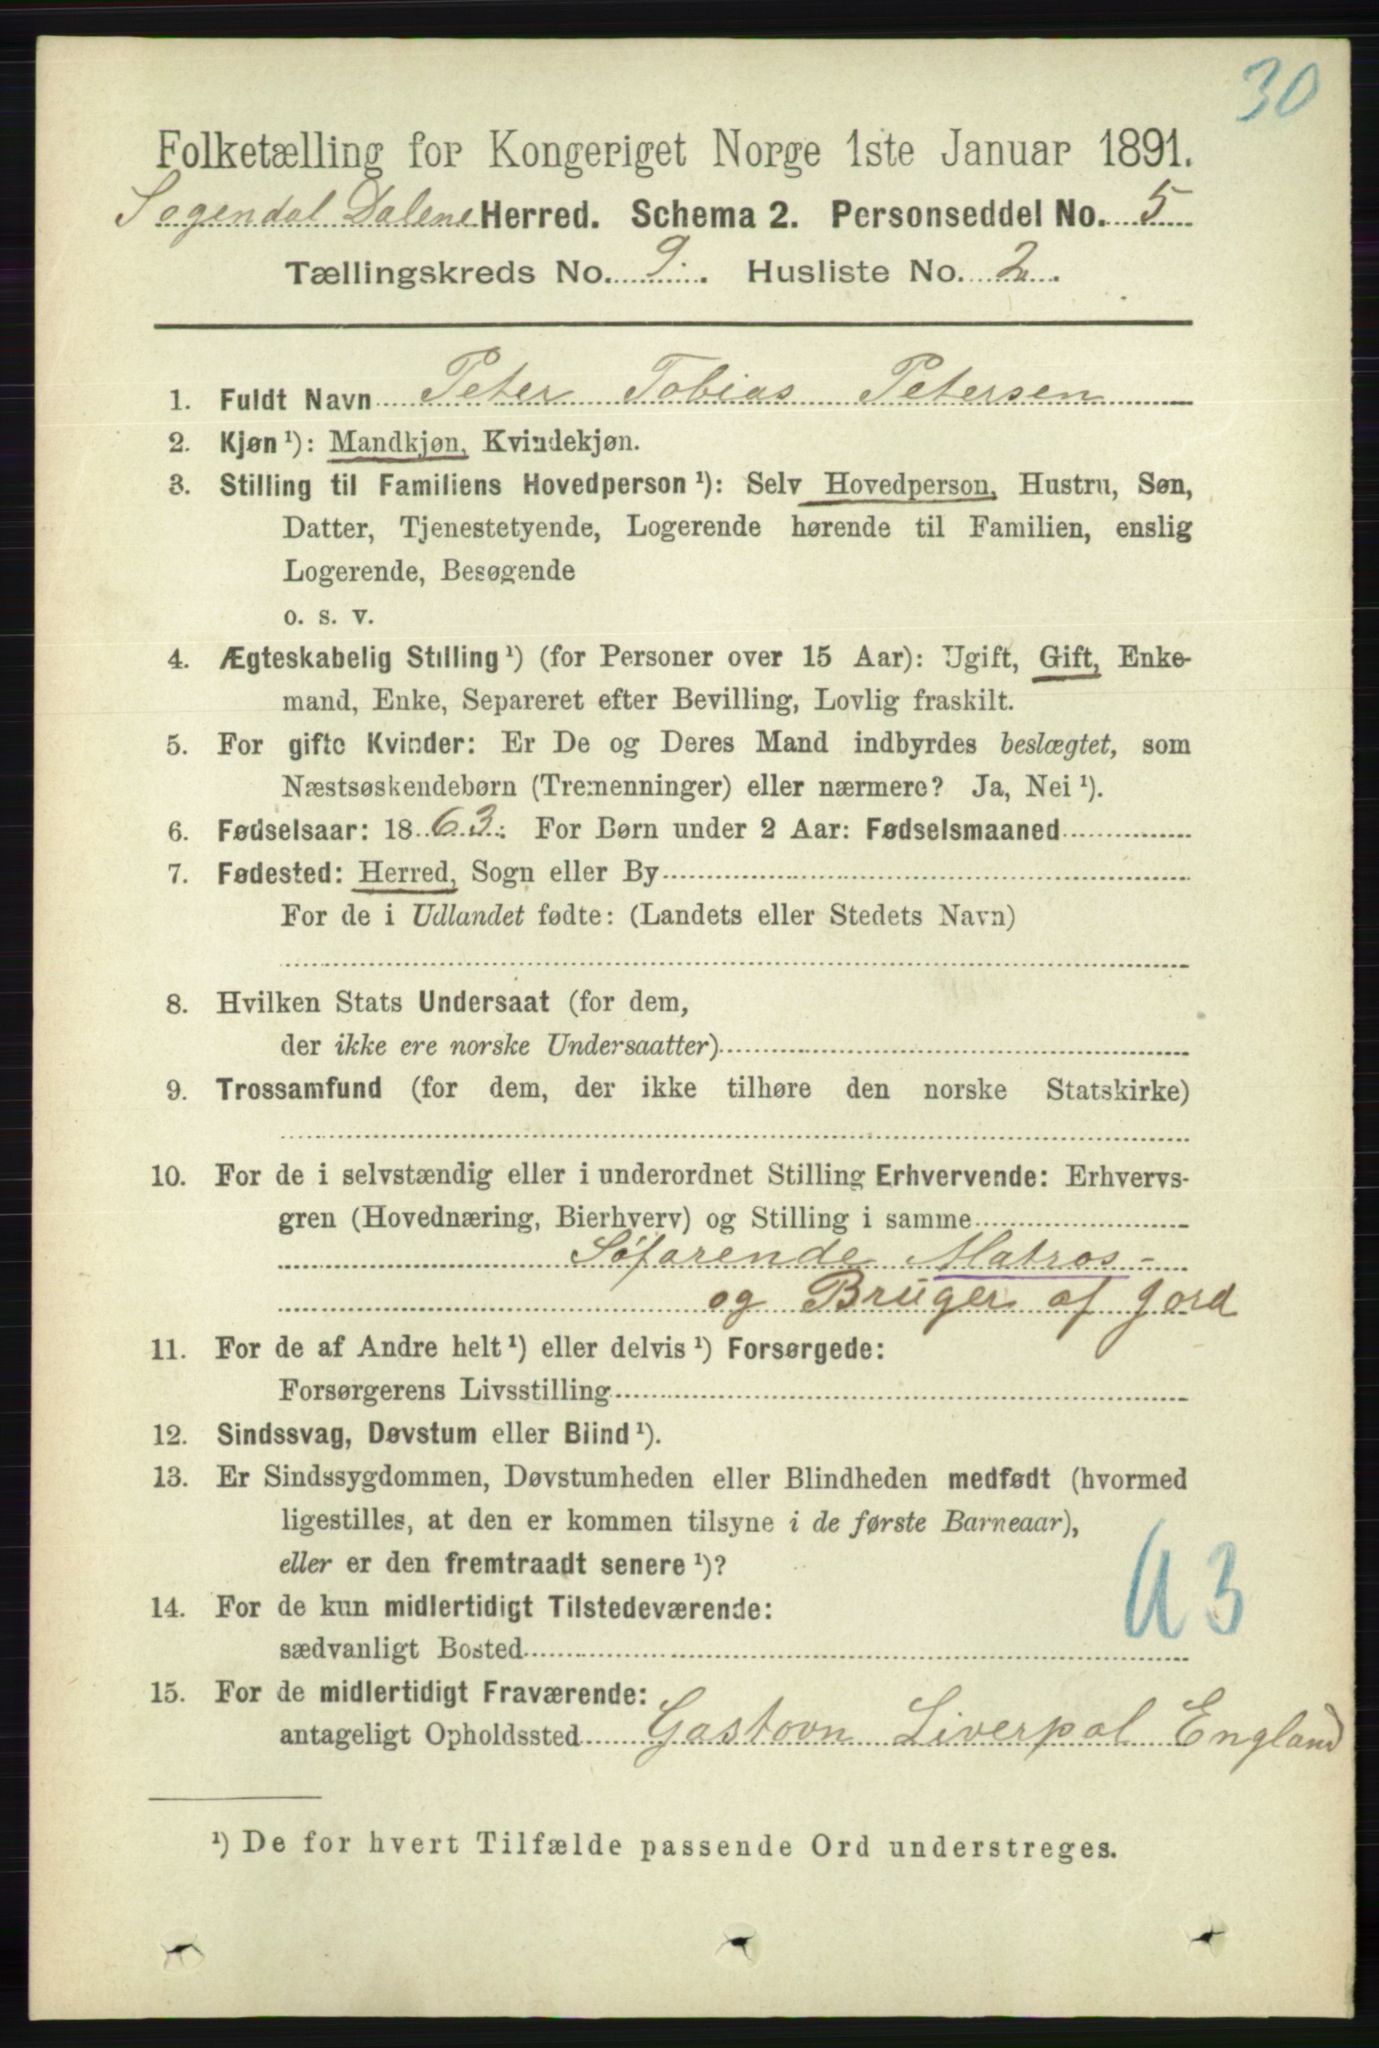 30
Folketælling for Kongeriget Norge 1ste Januar 1891.
Sogendal Dalene Herred. Schema 2. Personseddel No. 5
Tællingskreds No. 9. Husliste No. 2.
1. Fuldt Navn Peter Tobias Petersen
2. Kjøn ¹): Mandkjøn, Kvindekjøn.
3. Stilling til Familiens Hovedperson ¹): Selv Hovedperson, Hustru, Søn,
Datter, Tjenestetyende, Logerende hørende til Familien, enslig
Logerende, Besøgende
o. s. v.
4. Ægteskabelig Stilling ¹) (for Personer over 15 Aar): Ugift, Gift, Enke-
mand, Enke, Separeret efter Bevilling, Lovlig fraskilt.
5. For gifte Kvinder: Er De og Deres Mand indbyrdes beslægtet, som
Næstsøskendebørn (Tremenninger) eller nærmere? Ja, Nei ¹).
6. Fødselsaar: 1863. For Børn under 2 Aar: Fødselsmaaned
7. Fødested: Herred, Sogn eller By
For de i Udlandet fødte: (Landets eller Stedets Navn)
8. Hvilken Stats Undersaat (for dem,
der ikke ere norske Undersaatter)
9. Trossamfund (for dem, der ikke tilhøre den norske Statskirke)
10. For de i selvstændig eller i underordnet Stilling Erhvervende: Erhvervs-
gren (Hovednæring, Bierhverv) og Stilling i samme
Søfarende Matros-
og Bruger af Jord
11. For de af Andre helt ¹) eller delvis ¹) Forsørgede:
Forsørgerens Livsstilling
12. Sindssvag, Døvstum eller Blind ¹).
13. Er Sindssygdommen, Døvstumheden eller Blindheden medfødt (hvormed
ligestilles, at den er kommen tilsyne i de første Barneaar),
eller er den fremtraadt senere ¹)?
14. For de kun midlertidigt Tilstedeværende:
sædvanligt Bosted
U3
15. For de midlertidigt Fraværende:
antageligt Opholdssted Gastovn Liverpol England
¹) De for hvert Tilfælde passende Ord understreges.